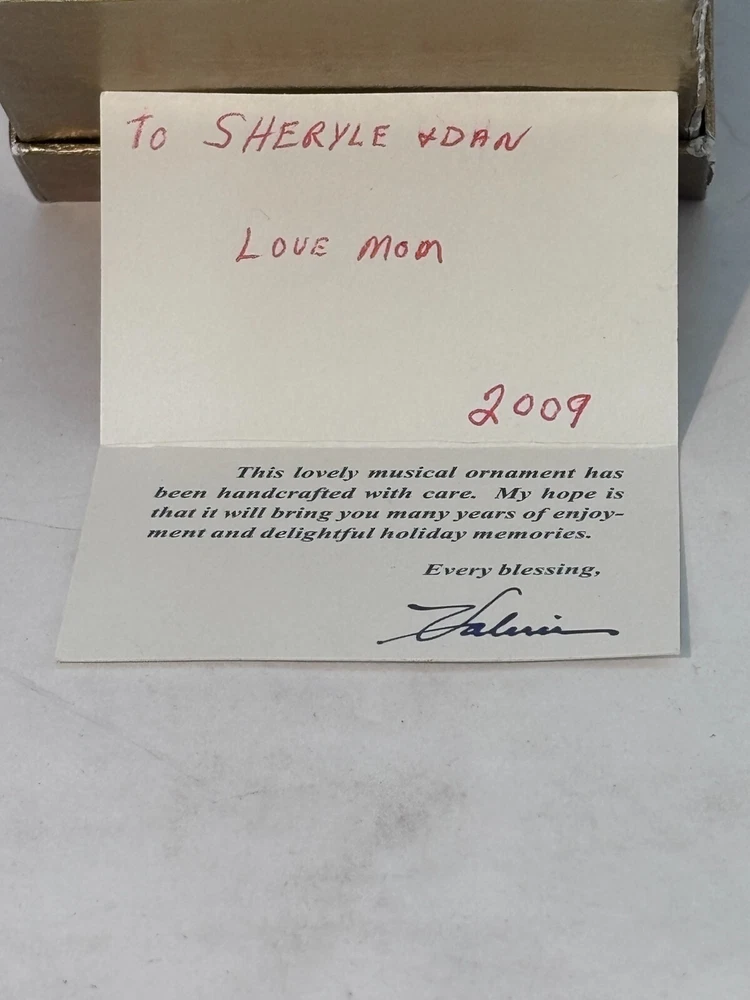 To SHERYLE & DAN
LOVE MOM
2009
This lovely musical ornament has
been handcrafted with care. My hope is
that it will bring you many years of enjoy-
ment and delightful holiday memories.
Every blessing,